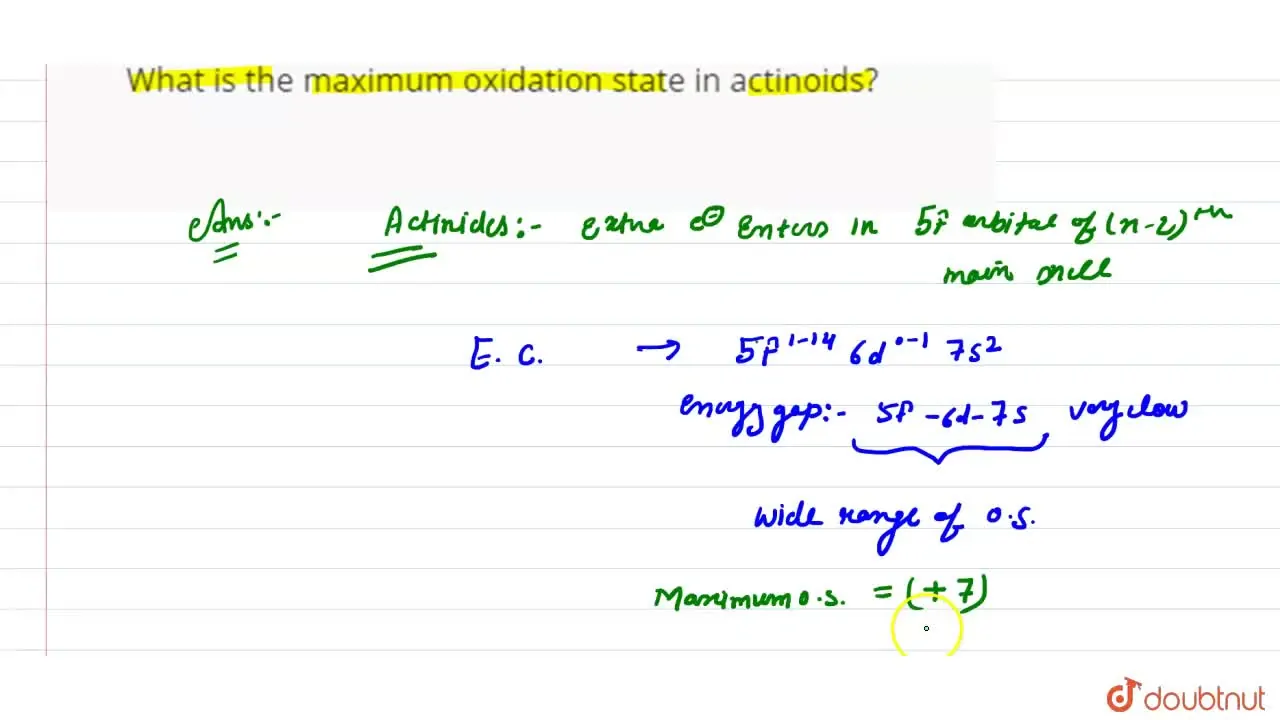 What is the maximum oxidation state in actinoids?
Ans:- Actinides:- extra e⊖ Enters in 5f orbital of (n-2)th
main shell
E. C. → 5f¹⁻¹⁴ 6d⁰⁻¹ 7s²
energy gap:- 5f-6d-7s very low
wide range of o.s.
Maximum o.s. = (+7)
doubtnut